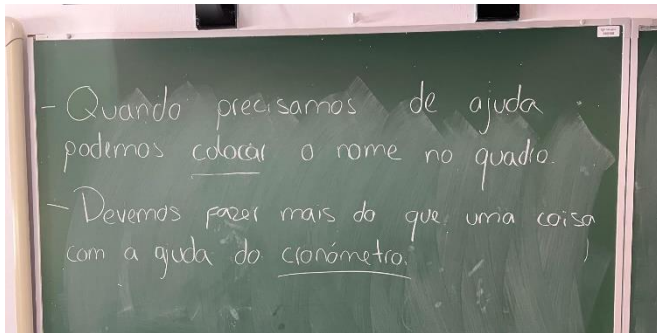 - Quando precisamos de ajuda
podemos colocar o nome no quadro.
- Devemos fazer mais do que uma coisa
com a ajuda do cronómetro.